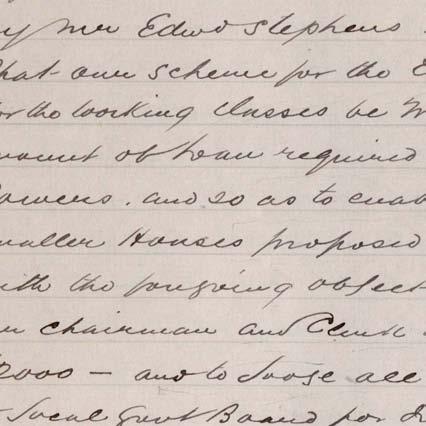 by Mr Edwd Stephens
that our scheme for the E
for the working classes be M
amount of Loan required
Powers. and so as to enab
smaller Houses proposed
with the forgoing object
our chairman and Clerk
2000 — and to do all
Local Govt Board for